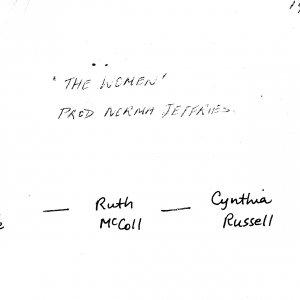 'THE WOMEN'
PROD NORMA JEFFRIES.
— Ruth — Cynthia
McColl Russell